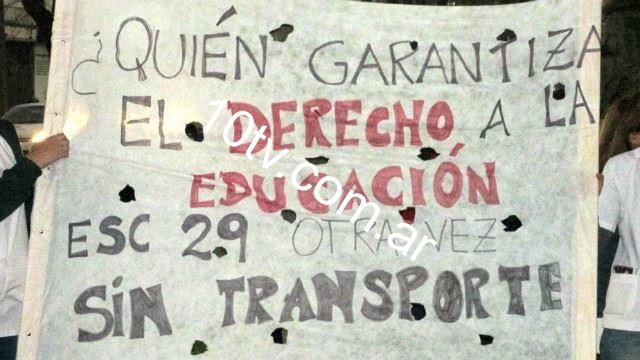 ¿QUIÉN GARANTIZA
EL DERECHO A LA
EDUCACIÓN
ESC 29 OTRA VEZ
SIN TRANSPORTE
10tv.com.ar